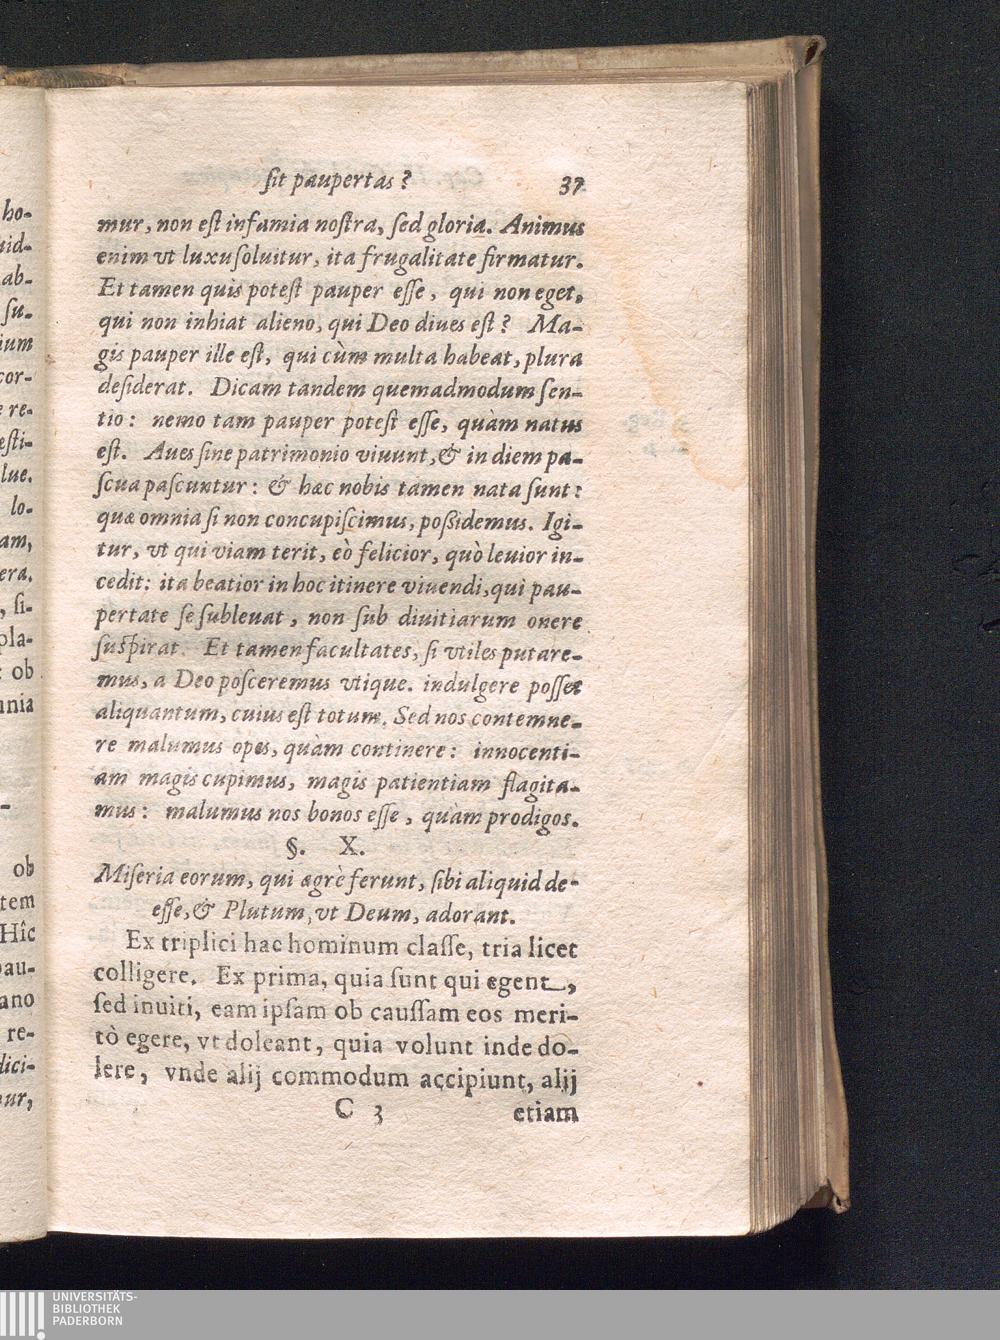 ſit paupertas? 37
mur, non eſt infamia noſtra, ſed gloria. Animus
enim vt luxu ſoluitur, ita frugalitate firmatur.
Et tamen quis poteſt pauper eſſe, qui non eget,
qui non inhiat alieno, qui Deo diues eſt? Ma-
gis pauper ille eſt, qui cùm multa habeat, plura
deſiderat. Dicam tandem quemadmodum ſen-
tio: nemo tam pauper poteſt eſſe, quàm natus
eſt. Aues ſine patrimonio viuunt, & in diem pa-
ſcua paſcuntur: & hæc nobis tamen nata ſunt:
quæ omnia ſi non concupiſcimus, poßidemus. Igi-
tur, vt qui viam terit, eò felicior, quò leuior in-
cedit: ita beatior in hoc itinere viuendi, qui pau-
pertate ſe ſubleuat, non ſub diuitiarum onere
ſuſpirat. Et tamen facultates, ſi vtiles putare-
mus, a Deo poſceremus vtique. indulgere poſſet
aliquantum, cuius eſt totum. Sed nos contemne-
re malumus opes, quàm continere: innocenti-
am magis cupimus, magis patientiam flagita-
mus: malumus nos bonos eſſe, quàm prodigos.
§. X.
Miſeria eorum, qui ægrè ferunt, ſibi aliquid de-
eſſe, & Plutum, vt Deum, adorant.
Ex triplici hac hominum claſſe, tria licet
colligere. Ex prima, quia ſunt qui egent,
ſed inuiti, eam ipſam ob cauſſam eos meri-
tò egere, vt doleant, quia volunt inde do-
lere, vnde alij commodum accipiunt, alij
C 3 etiam
ho-
uid-
ab-
ſu-
ium
cor-
e re-
æſti-
lue.
lo-
am,
era.
, ſi-
pla-
: ob
mnia
-
ob
tem
Hîc
pau-
ano
re-
dici-
mur,
UNIVERSITÄTS-
BIBLIOTHEK
PADERBORN